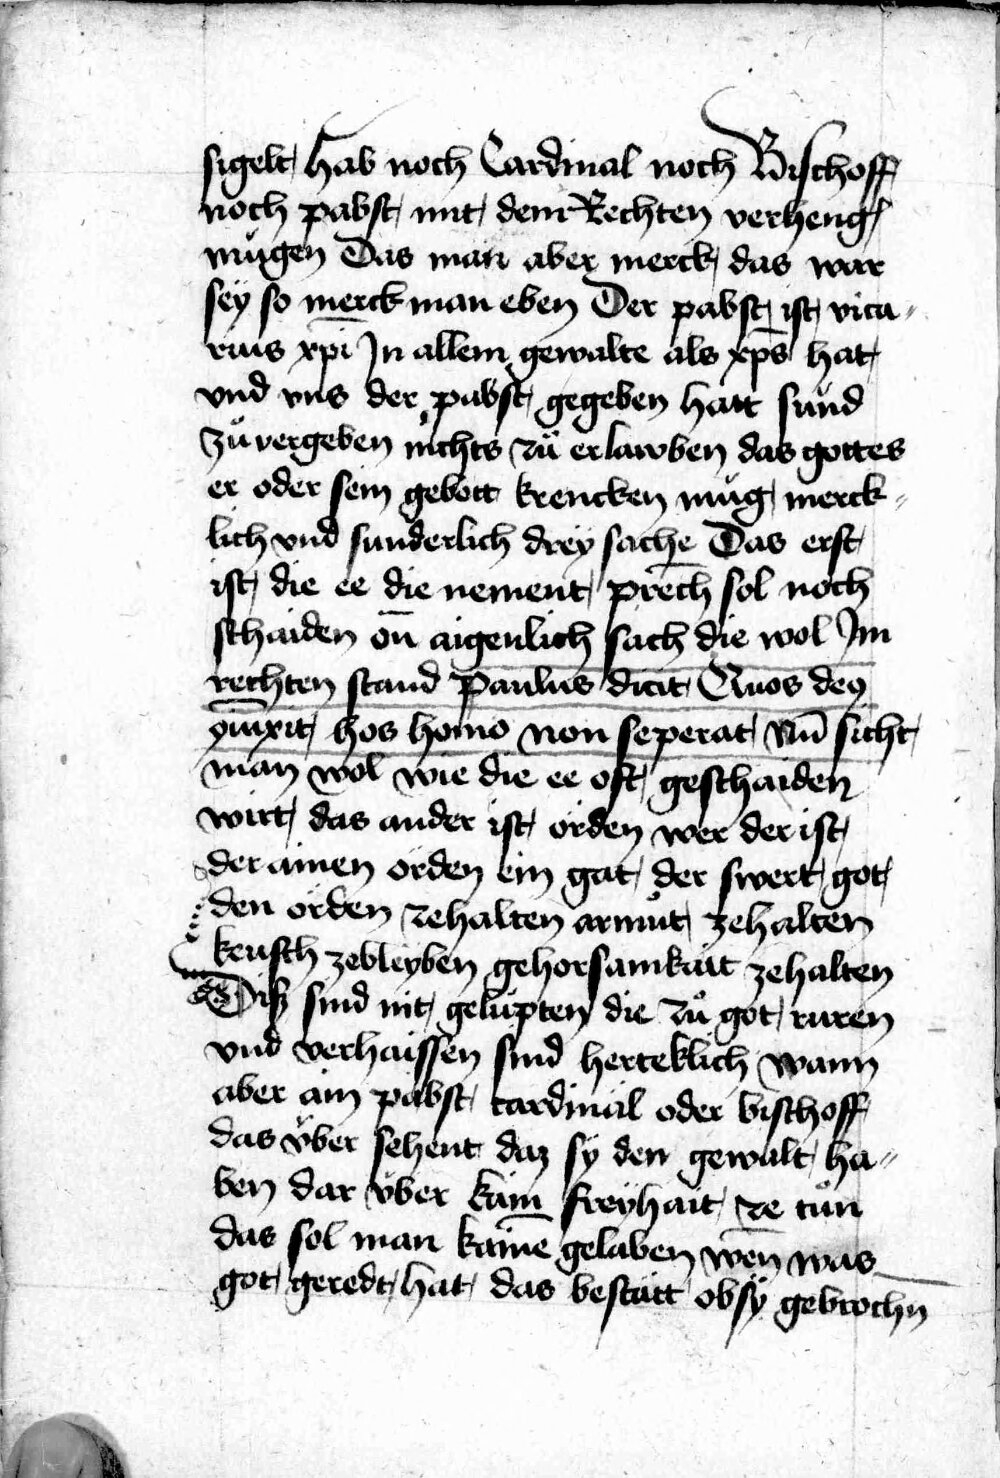 sigelt hab noch Cardinal noch Bischoff
noch pabst mit dem Rechten verheng
mügen Das man aber merck das war
sey so merck man eben Der pabst ist vica-
rius xp̄i Jn allem gewalte als xp̄s hat
vnd vns der pabst gegeben hatt sünd
zů vergeben nichts zů erlawben das gottes
er oder sein gebott krencken müg merck-
lich vnd sunderlich drey sache Das erst
ist die ee die nement prech sol noch
schaiden on̄ aigenlich sach die wol Jm
rechten stand Paulus dicit Quos deꝯ
ꝯiūxit hos homo non seperat Nū sicht
man wol wie die ee oft geschaiden
wirt das ander ist örden wer der ist
der ainen örden ein gat der swert got
den örden zehalten armůt zehalten
keusch zebleyben gehorsamkait zehalten
Disz sind nit gelüpten die zů got rüren
vnd verhaissen sind herteklich wann
aber ain pabst cardinäl oder bischoff
das v̈ber sehent daz sy den gewalt ha-
ben dar v̈ber kain freyhait ze tůn
das sol man kaine gelaben wen̄ was
got geredt hat das bestätt ob sy gebrochn